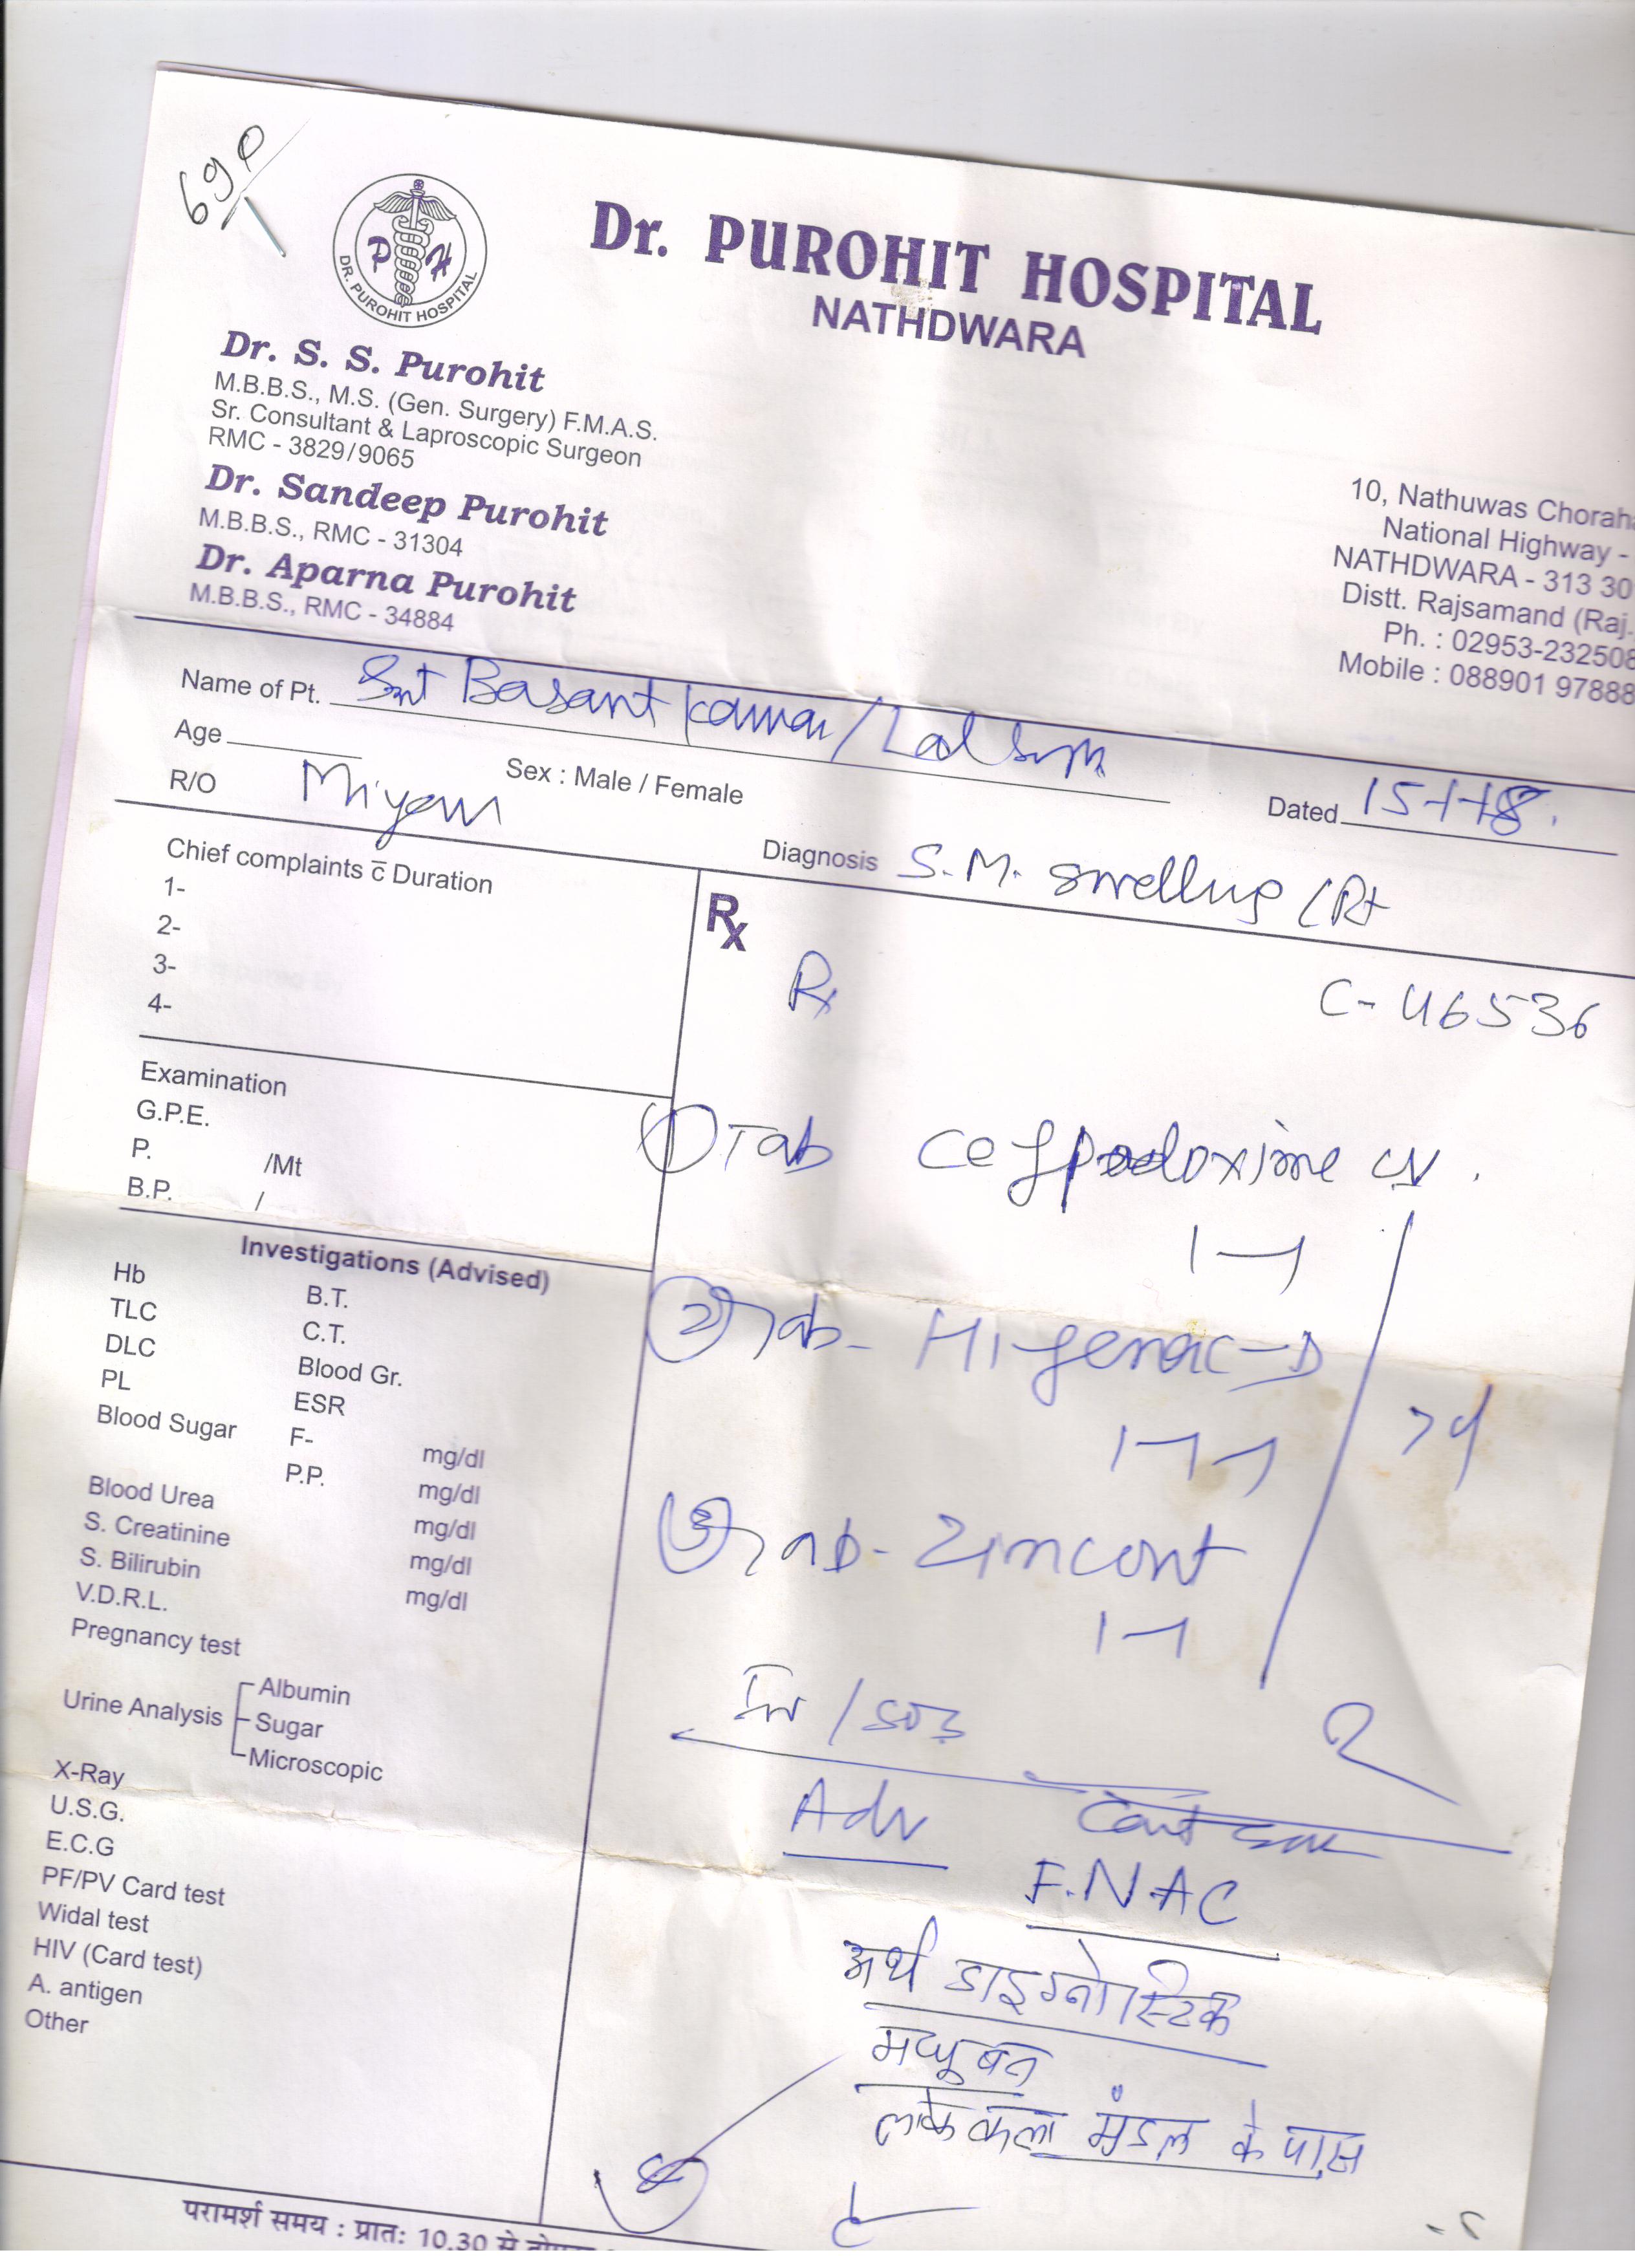 690
Dr. PUROHIT HOSPITAL
NATHDWARA
P H
DR. PUROHIT HOSPITAL
Dr. S. S. Purohit
M.B.B.S., M.S. (Gen. Surgery) F.M.A.S.
Sr. Consultant & Laproscopic Surgeon
RMC - 3829/9065
Dr. Sandeep Purohit
M.B.B.S., RMC - 31304
Dr. Aparna Purohit
M.B.B.S., RMC - 34884
10, Nathuwas Choraha
National Highway -
NATHDWARA - 313 30
Distt. Rajsamand (Raj.
Ph. : 02953-232508
Mobile : 088901 97888
Name of Pt. Smt Basant Kanwar / Lal Singh
Age
Sex : Male / Female
Dated 15-1-18.
R/O
Diagnosis S.M. swelling (Rt
Chief complaints c̅ Duration
1-
2-
3-
4-
Rx
Rx
C- 46536
Examination
G.P.E.
P. /Mt
B.P. /
① Tab Cefpodoxime cv.
1-1
Investigations (Advised)
Hb B.T.
TLC C.T.
DLC Blood Gr.
PL ESR
Blood Sugar F- mg/dl
P.P. mg/dl
Blood Urea mg/dl
S. Creatinine mg/dl
S. Bilirubin mg/dl
V.D.R.L.
Pregnancy test
Urine Analysis Albumin
Sugar
Microscopic
X-Ray
U.S.G.
E.C.G
PF/PV Card test
Widal test
HIV (Card test)
A. antigen
Other
② Tab- Hifenac-D
1-1-1
③ Tab- Zimcort
1-1
Adv
F.N.A.C
अर्थ डाइग्नोस्टिक
मधुबन
लोक कला मंडल के पास
परामर्श समय : प्रातः 10.30 से